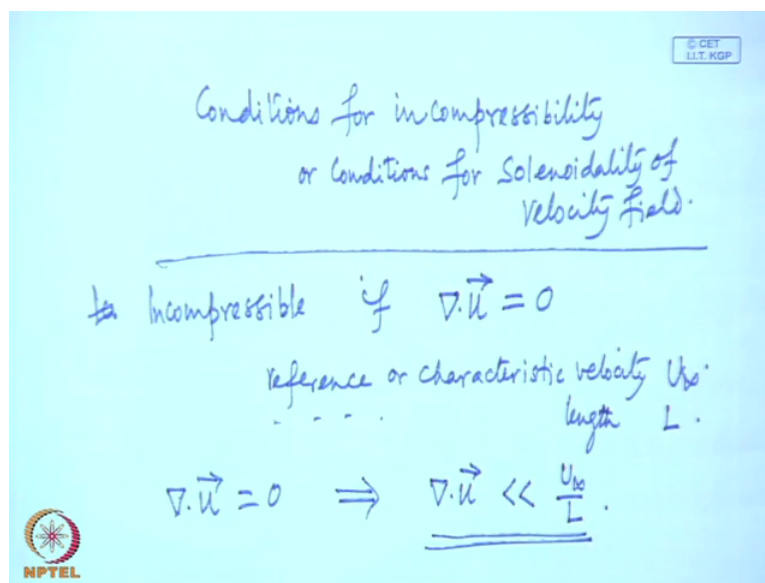 © CET
I.I.T. KGP
Conditions for incompressibility
or Conditions for Solenoidality of
Velocity field.
Incompressible if ∇.u⃗ = 0
reference or characteristic velocity U∞.
- - - - length L.
∇.u⃗ = 0 ⇒ ∇.u⃗ << U∞/L.
NPTEL